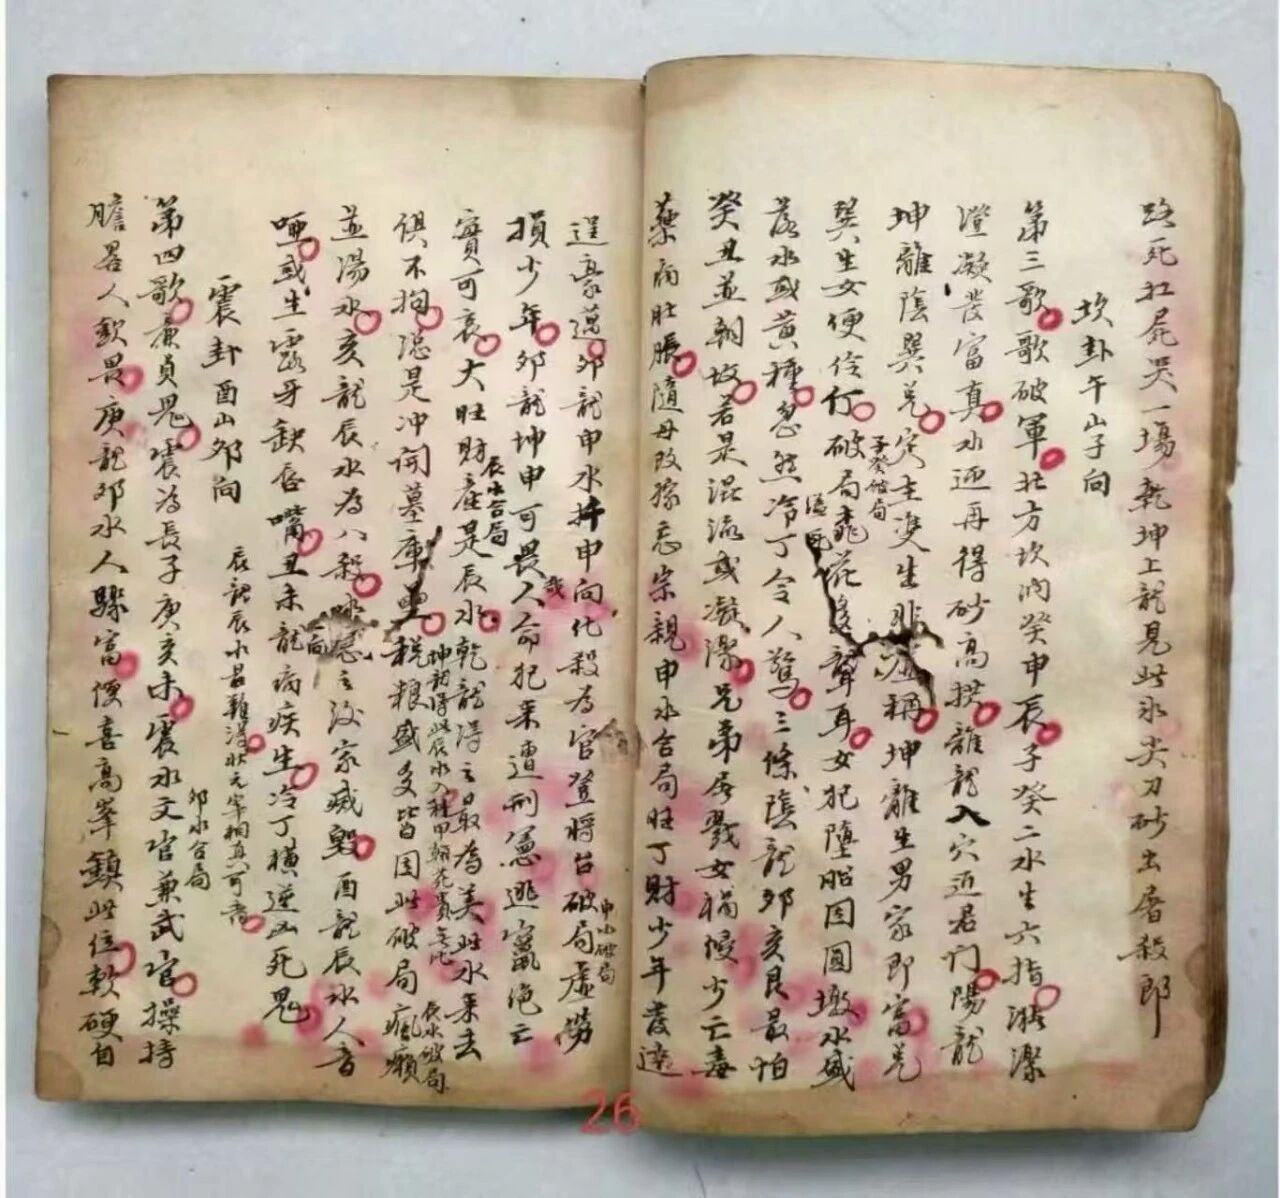 路死扛屍哭一場乾坤上龍見此水尖刀砂出屠殺郎
坎卦午山子向
第三歌歌破軍北方坎內癸申辰子癸二水生六指潔
澄凝發富真水迎再得砂高拱離龍入穴近君門陽龍
坤離陰巽兑定主雙生非虛稱坤離生男家即富兑
巽生女便伶仃破局花聲耳女犯墮胎因圓墩水盛
子癸破局
落水或黃種忽然冷丁令人驚三條陰龍卯亥艮最怕
癸丑並朝坟若是混流或凝潔兄弟女禍候少亡毒
藥病肚脹隨母改嫁忘宗親申水合局旺丁財少年發達
逞豪邁卯龍申水拜申向化殺為官登將台破局虛勞
申水破局
損少年卯龍坤申可畏人命犯來遭刑憲逃竄絕亡
或
實可哀大旺財產是辰水乾龍得之最為美此水來去
辰水合局
俱不拘恐是沖開墓庫里稅粮盛多皆因此破局瘋癩
坤龍得此辰水入種甲翰苑貴無比
辰水破局
並湯水亥龍辰水為八殺水惑之後家滅毀酉龍辰水人音
啞或生露牙缺唇嘴丑未龍病疾生冷丁橫逆凶死鬼
向
辰龍辰水最難得狀元宰相真可者
震卦酉山卯向
卯水合局
第四歌廉貞鬼震為長子庚亥未震水文官兼武官操持
膽畧人欽畏庚龍卯水人驟富便喜高峯鎮此位軟硬自
26